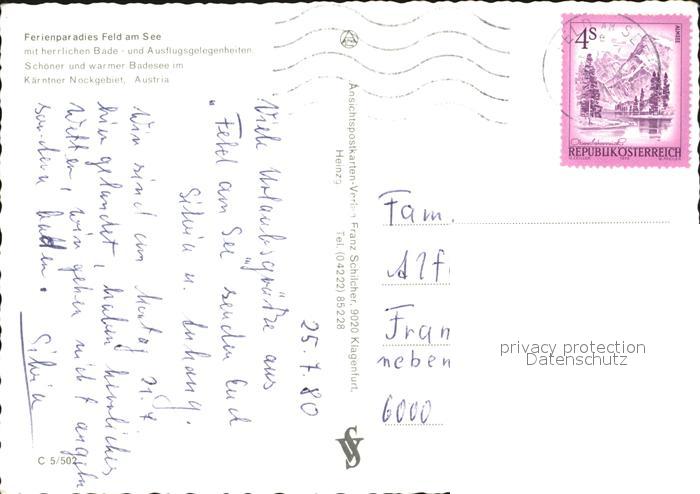 Ferienparadies Feld am See
mit herrlichen Bade- und Ausflugsgelegenheiten.
Schöner und warmer Badesee im
Kärntner Nockgebiet, Austria
25.7.80
Viele Urlaubsgrüße aus
"Feld am See" senden Euch
Silvia u. Anhang.
Wir sind am Montag 21.7
hier gelandet, haben herrliches
Wetter, wir gehen nicht angeln
sondern baden. Silvia
C 5/502
Ansichtspostkarten-Verlag Franz Schilcher, 9020 Klagenfurt,
Heinzg Tel. (04222) 85228
4s
ALMSEE
REPUBLIK ÖSTERREICH
FELD AM SEE
Fam.
Alf
Fran
neben
6000
privacy protection
Datenschutz